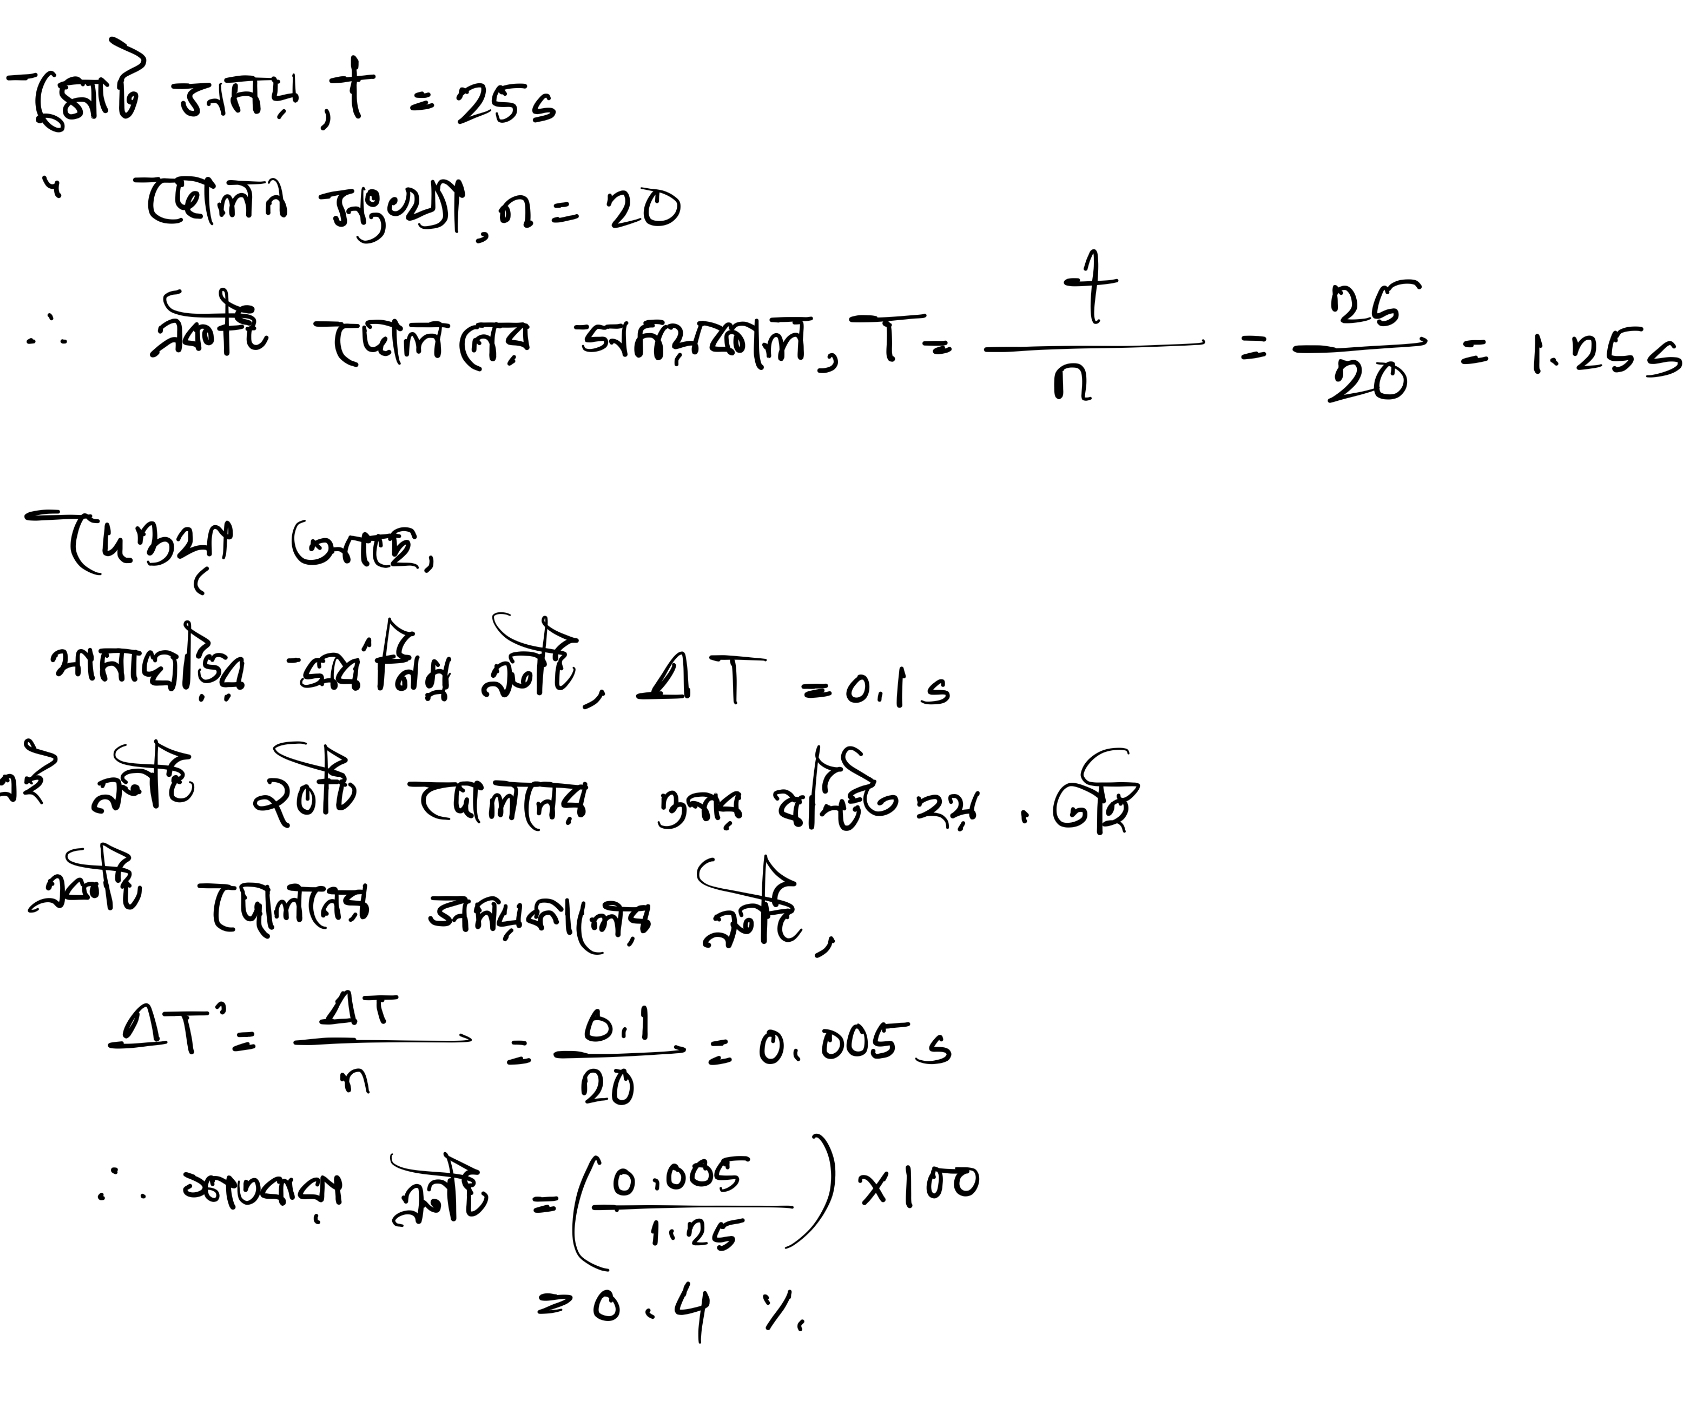 মোট সময়, t = 25s
" দোলন সংখ্যা, n = 20
∴ একটি দোলনের সময়কাল, T = t/n = 25/20 = 1.25s
দেওয়া আছে,
থামাঘড়ির সর্বনিম্ন ত্রুটি, ΔT = 0.1s
এই ত্রুটি ২০টি দোলনের ওপর বন্টিত হয়. তাই
একটি দোলনের সময়কালের ত্রুটি,
ΔT' = ΔT/n = 0.1/20 = 0.005s
∴ শতকরা ত্রুটি = (0.005/1.25) × 100
= 0.4 %.